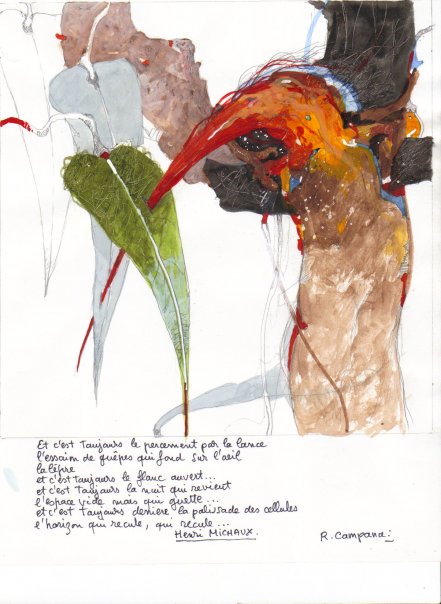 Et c'est toujours le percement par la lance
l'essaim de guêpes qui fond sur l'œil
la lèpre
et c'est toujours le flanc ouvert...
et c'est toujours la nuit qui revient
l'espace vide mais qui guette...
et c'est toujours derrière la palissade des cellules
l'horizon qui recule, qui recule...
Henri MICHAUX.
R. Campana